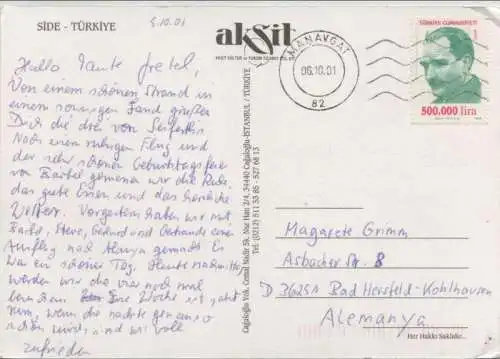 SIDE - TÜRKİYE
5.10.01
Hallo Tante Gretel,
Von einem schönen Strand in
einem sonnigen Land grüßen
Dich die drei von Seiferths
Nach einem ruhigen Flug und
der sehr schönen Geburtstagsfeier
von Bärbel genießen wir die Ruhe,
das gute Essen und das herrliche
Wetter. Vorgestern haben wir mit
Bärbel, Steve, Gerhard und
Ausflug nach Alanya gemacht. Es
war ein schöner Tag. Heute nachmittag
werden wir die vier noch mal
besuchen. Eine Woche ist jetzt
rum, wenn die nächste genauso
schön wird, sind wir voll
zufrieden
akşit
MANAVGAT
06.10.01
82
TÜRKİYE CUMHURİYETİ
500.000 lira
Cağaloğlu Yok. Cemal Nadir Sk. Nur Han 2/4, 34440 Cağaloğlu-İSTANBUL / TÜRKİYE
Tel: (0212) 511 33 85 - 527 68 13
Magarete Grimm
Asbacher Str. 8
D 36251 Bad Hersfeld-Kohlhausen
Alemanya
Her Hakkı Saklıdır..